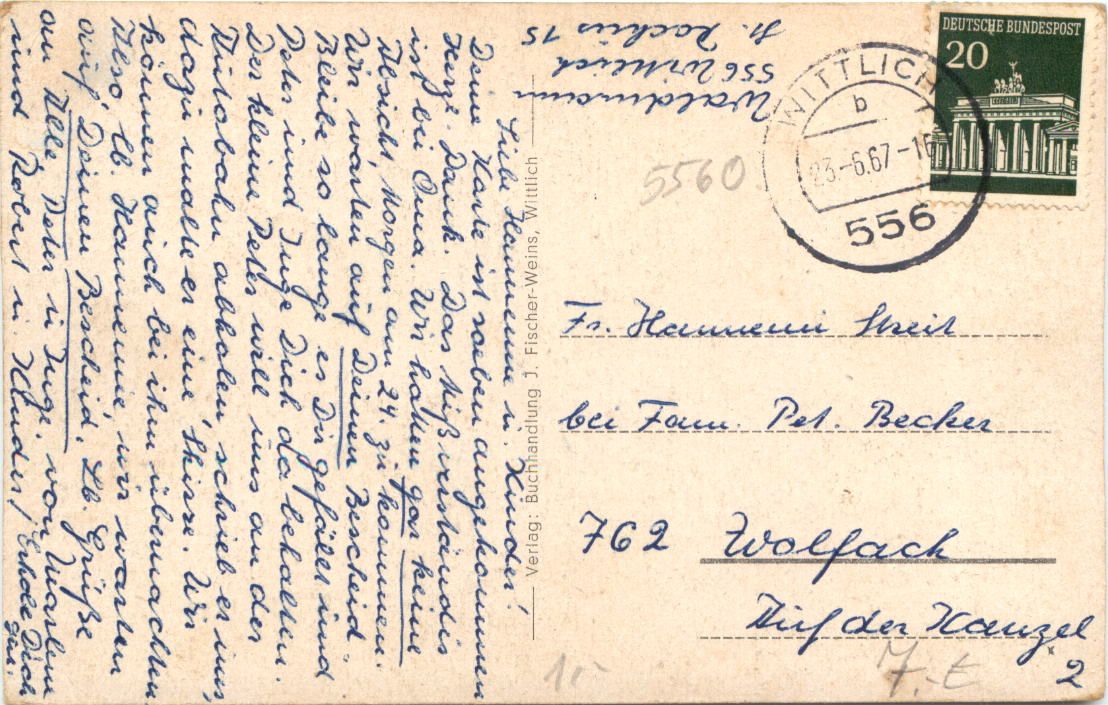 Liebe Hannemie u. Kinder!
Deine Karte ist soeben angekommen
Herzl. Dank. Das Mißverständis
ist bei Oma. Wir hatten gar keine
Absicht, morgen am 24. zu kommen.
Wir warten auf Deinen Bescheid.
Bleibe so lange es Dir gefällt und
Peter und Inge Dich da behalten.
Der kleine Peter will uns an der
Autobahn abholen schrieb er uns,
dazu malte er eine Skizze. Wir
können auch bei ihm übernachten.
Also, lb. Hannemie wir warten
auf Deinen Bescheid. Lb. Grüße
an Alle, Peter u. Inge. von
und Robert u. Kinder, Erhole Dich
gut.
Waldmann
556 Wittlich
St. Rochus 15
Verlag: Buchhandlung J. Fischer-Weins, Wittlich
DEUTSCHE BUNDESPOST
20
WITTLICH
b
23.-6.67-16
556
5560
Fr. Hannemi Streit
bei Fam. Pet. Becker
762 Wolfach
Auf der Kanzel
2
10.-
7.-